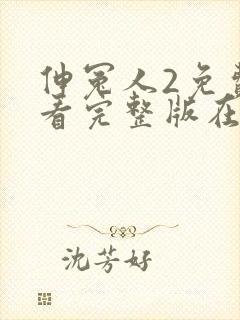 伸冤人2免费
看完整版在
沈芳好